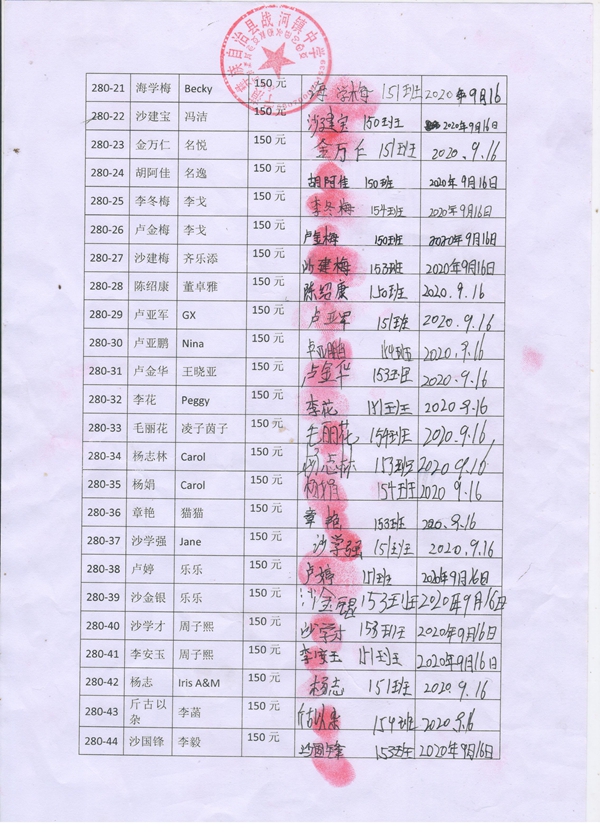 族自治县战河镇中学
280-21 海学梅 Becky 150 元 海学梅 151班 2020年9月16
280-22 沙建宝 冯洁 150 元 沙建宝 150班 2020年9月16日
280-23 金万仁 名悦 150 元 金万仁 151班 2020.9.16
280-24 胡阿佳 名逸 150 元 胡阿佳 150班 2020年9月16日
280-25 李冬梅 李戈 150 元 李冬梅 154班 2020年9月16日
280-26 卢金梅 李戈 150 元 卢金梅 150班 2020年9月16日
280-27 沙建梅 齐乐添 150 元 沙建梅 153班 2020年9月16日
280-28 陈绍康 董卓雅 150 元 陈绍康 150班 2020.9.16
280-29 卢亚军 GX 150 元 卢亚军 151班 2020.9.16
280-30 卢亚鹏 Nina 150 元 卢亚鹏 154班 2020.9.16
280-31 卢金华 王晓亚 150 元 卢金华 153班 2020.9.16
280-32 李花 Peggy 150 元 李花 151班 2020.9.16
280-33 毛丽花 凌子茵子 150 元 毛丽花 154班 2020.9.16
280-34 杨志林 Carol 150 元 杨志林 153班 2020.9.16
280-35 杨娟 Carol 150 元 杨娟 154班 2020.9.16
280-36 章艳 猫猫 150 元 章艳 153班 2020.9.16
280-37 沙学强 Jane 150 元 沙学强 151班 2020.9.16
280-38 卢婷 乐乐 150 元 卢婷 151班 2020年9月16日
280-39 沙金银 乐乐 150 元 沙金银 153班 2020年9月16日
280-40 沙学才 周子熙 150 元 沙学才 153班 2020年9月16日
280-41 李安玉 周子熙 150 元 李安玉 151班 2020年9月16日
280-42 杨志 Iris A&M 150 元 杨志 151班 2020.9.16
280-43 斤古以杂 李菡 150 元 斤古以杂 154班 2020.9.16
280-44 沙国锋 李毅 150 元 沙国锋 153班 2020年9月16日